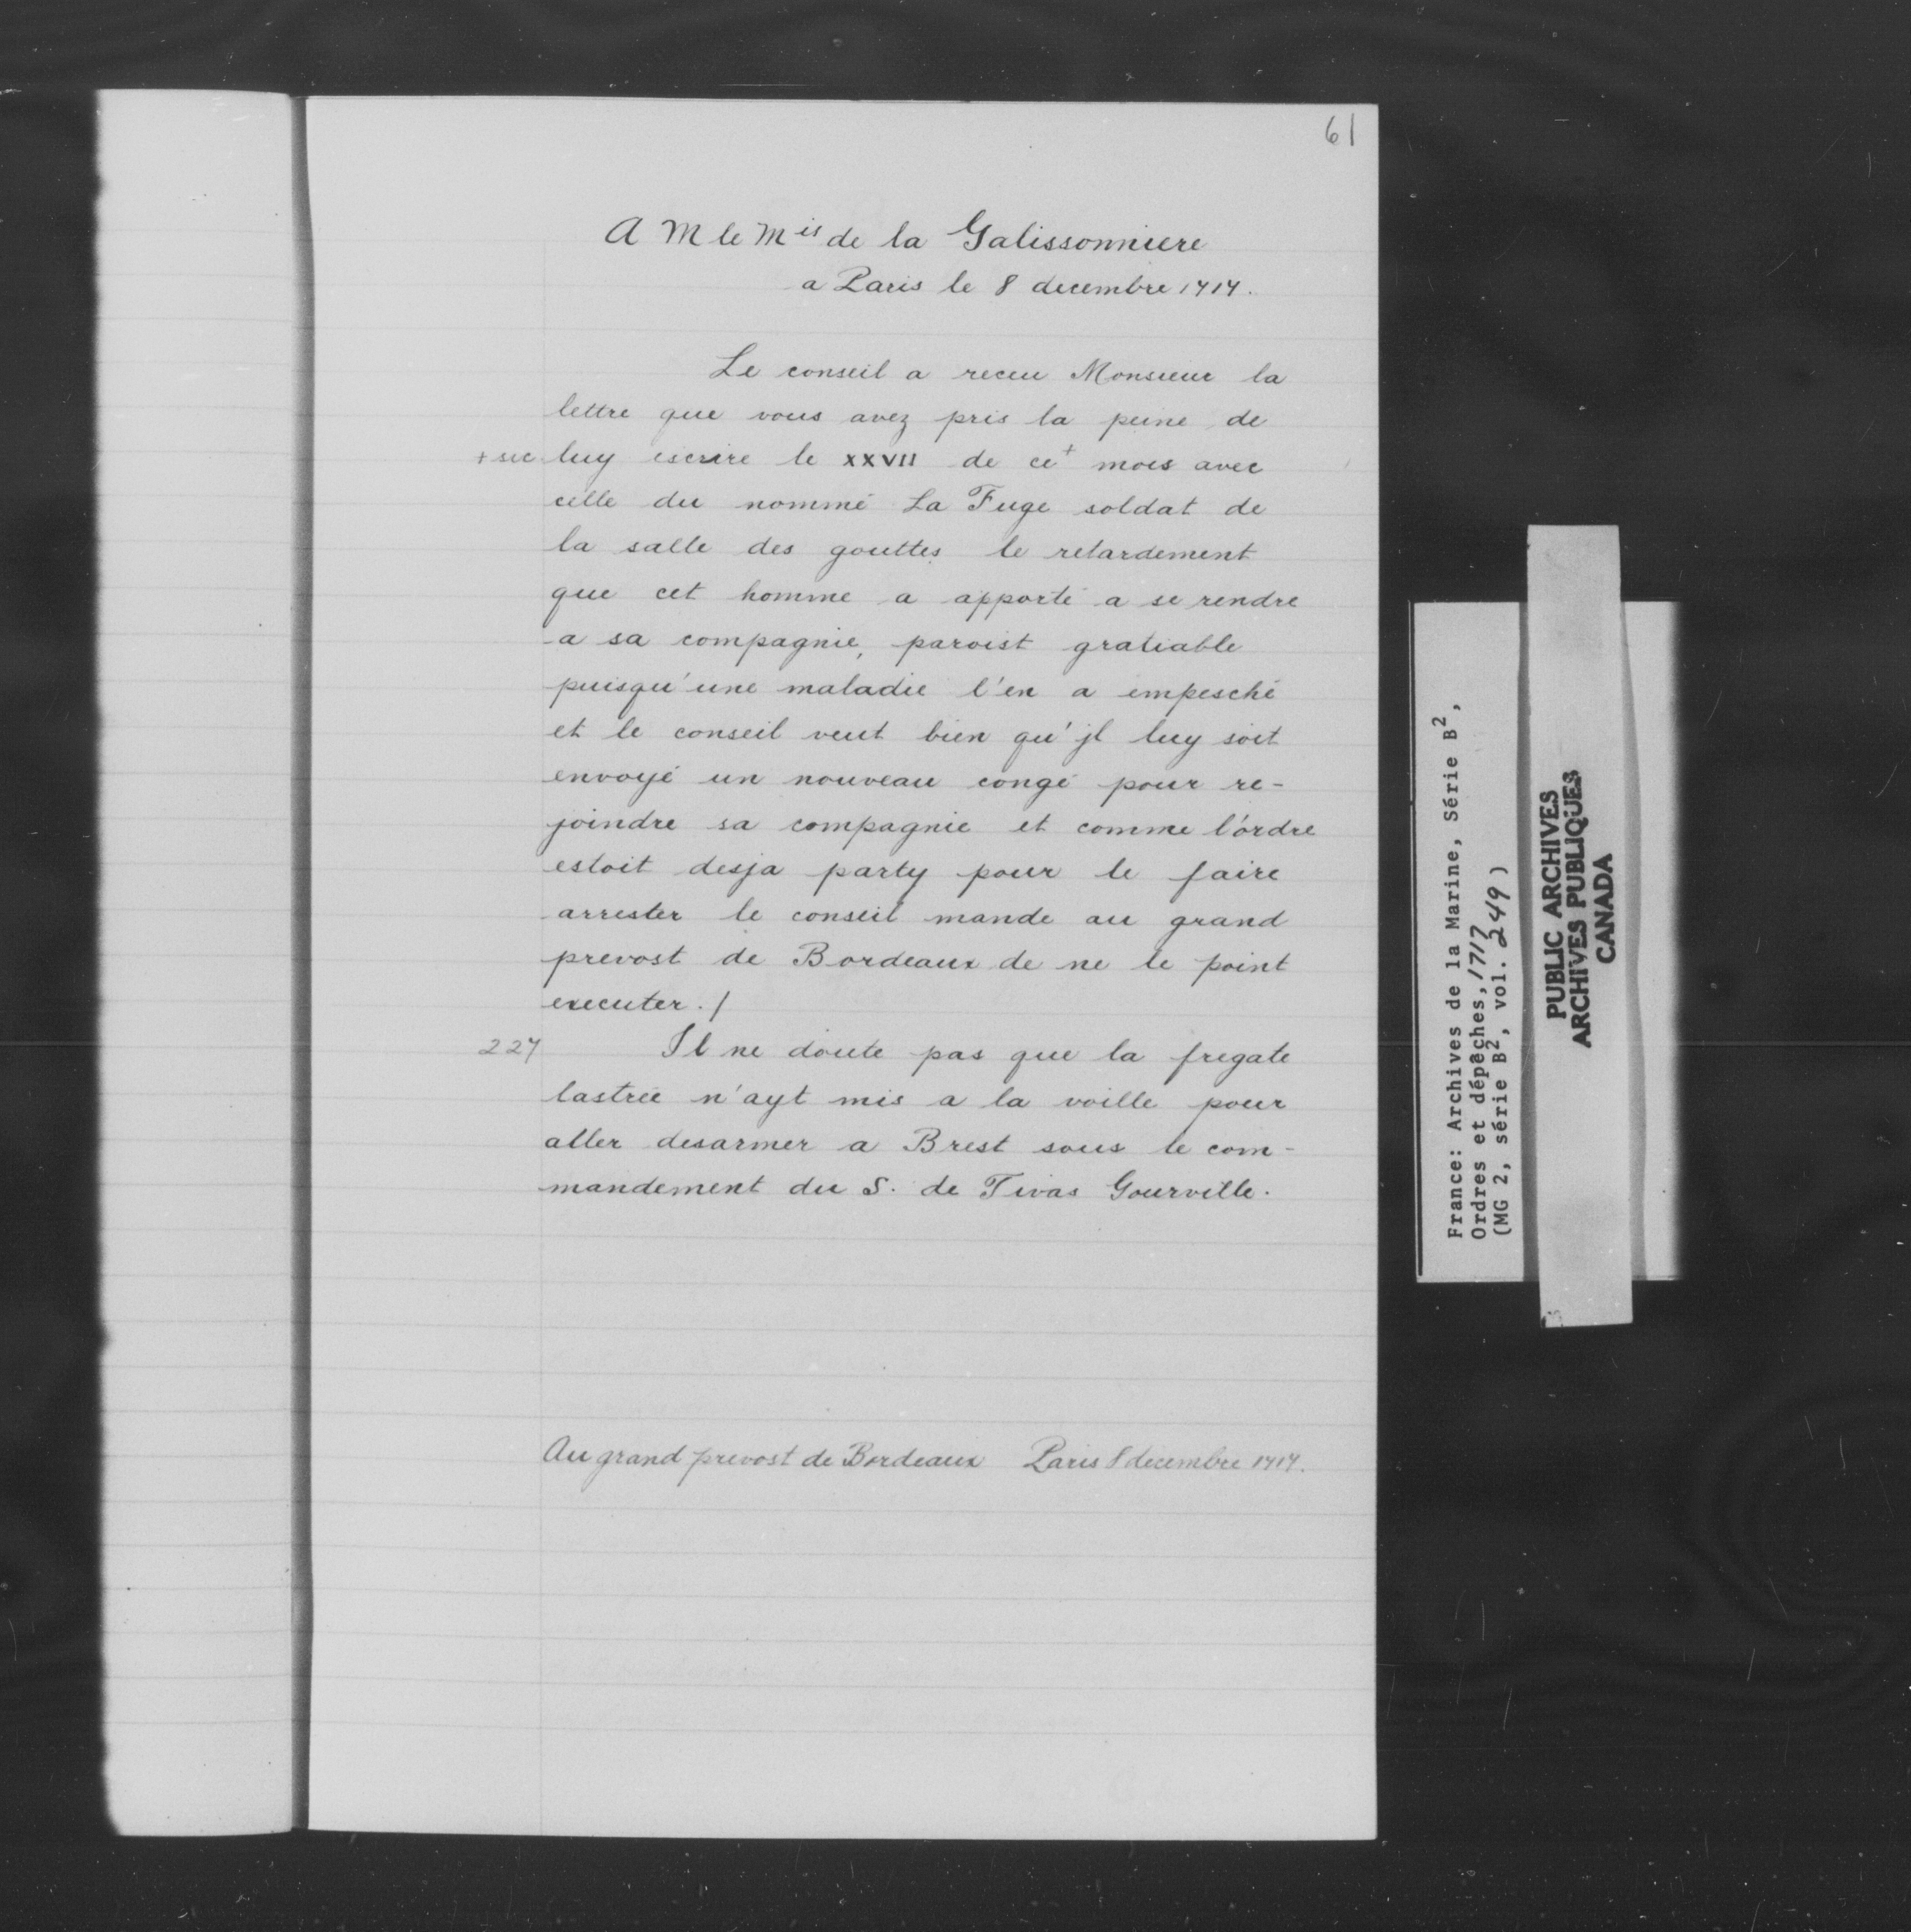 61
A M le Mis de la Galissonniere
a Paris le 8 decembre 1717.
Le conseil a receu Monsieur la
lettre que vous avez pris la peine de
+ sic luy escrire le XXVII de ce+ mois avec
celle du nommé La Fuge soldat de
la salle des gouttes le retardement
que cet homme a apporté a se rendre
a sa compagnie, paroist gratiable
puisqu'une maladie l'en a empesché
et le conseil veut bien qu'jl luy soit
envoyé un nouveau congé pour re-
joindre sa compagnie et comme l'ordre
estoit desja party pour le faire
arrester le conseil mande au grand
prevost de Bordeaux de ne le point
executer. /
227 Il ne doute pas que la fregate
lastrée n'ayt mis a la voille pour
aller desarmer a Brest sous le com-
mandement du S. de Tivas Gourville.
Au grand prevost de Bordeaux Paris 8 decembre 1717.
France: Archives de la Marine, Série B2,
Ordres et dépêches, 1717
(MG 2, série B2, vol. 249)
PUBLIC ARCHIVES
ARCHIVES PUBLIQUES
CANADA